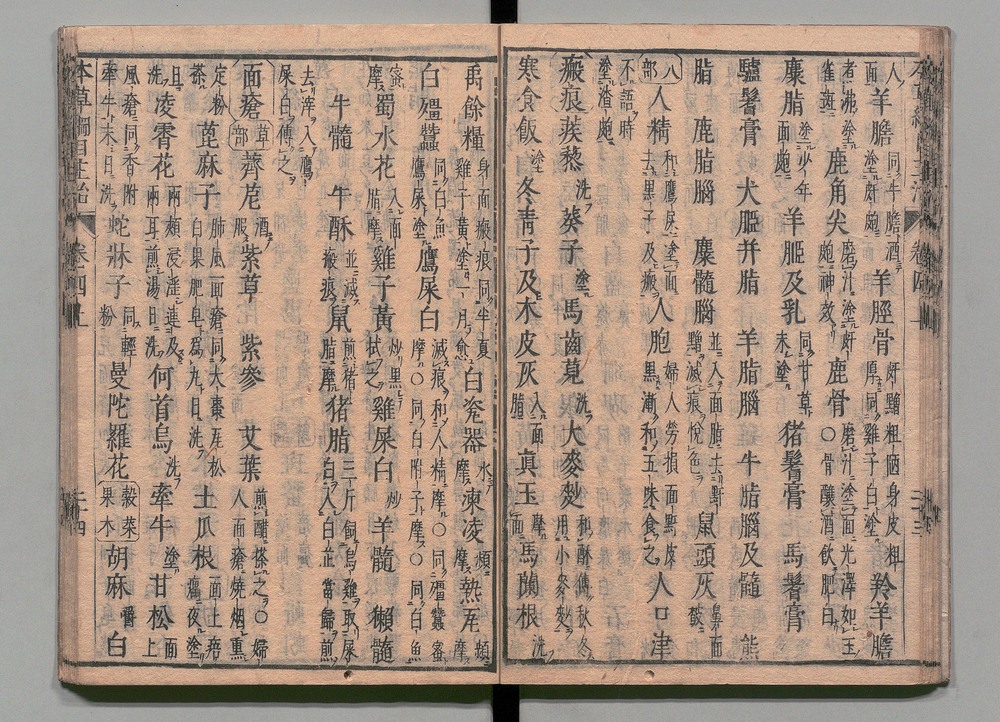 人 面 羊膽 同牛膽酒塗皯皰 羊脛骨 皯䵟粗陋身皮粗 羚羊膽
者沸塗 雀斑 鹿角尖 磨汁塗皯皰神效 鹿骨 磨汁塗面光澤如玉 ○骨釀酒飲肥白
麋脂 塗少年面皰 羊胵及乳 同甘草末塗 猪鬐膏 馬鬐膏
驢鬐膏 犬胵并脂 羊脂腦 牛脂腦及髓 熊
脂 鹿脂腦 麋髓腦 並入面脂去䵟滅痕悅色 鼠頭灰 鼻面皶
人部 人精 和鷹屎塗面去黑子及瘢 人胞 婦人勞損面䵟皮黑漸和五味食之 人口津
不語時塗皶皰
瘢痕 蒺蔾 洗 葵子 塗 馬齒莧 洗 大麥麨 和酥傅 秋冬用小麥麨
寒食飯 塗 冬青子及木皮灰 入面脂 真玉 摩面 馬藺根 洗
禹餘糧 身面瘢痕同半夏雞子黃塗一月愈 白瓷器 水摩 凍凌 頻摩 熱瓦 頻摩
白殭蠶 同白魚鷹屎塗 鷹屎白 滅痕和人精摩○同殭蠶蜜摩○同白附子摩○同白魚
蜜摩 蜀水花 入面脂摩 雞子黃 炒黑拭之 雞屎白 炒 羊髓 獺髓
牛髓 牛酥 並滅瘢痕 鼠 煎猪脂摩 猪脂 三斤飼烏雞取屎白入白芷當歸煎
去滓入鷹屎白傅之
面瘡 草部 薺苨 酒服 紫草 紫參 艾葉 煎醋搽之○婦人面瘡燒烟熏
定粉茶 蓖麻子 肺風面瘡同大棗瓦松白果肥皂為丸日洗 土瓜根 面上痞㿔夜塗
且洗 凌霄花 兩頰浸淫連及兩耳煎湯日洗 何首烏 洗 牽牛 塗 甘松 面上
風瘡同香附牽牛末日洗 蛇牀子 同輕粉 曼陀羅花 穀菜果木 胡麻 嚼 白
本草綱目主治 卷四上 二十四